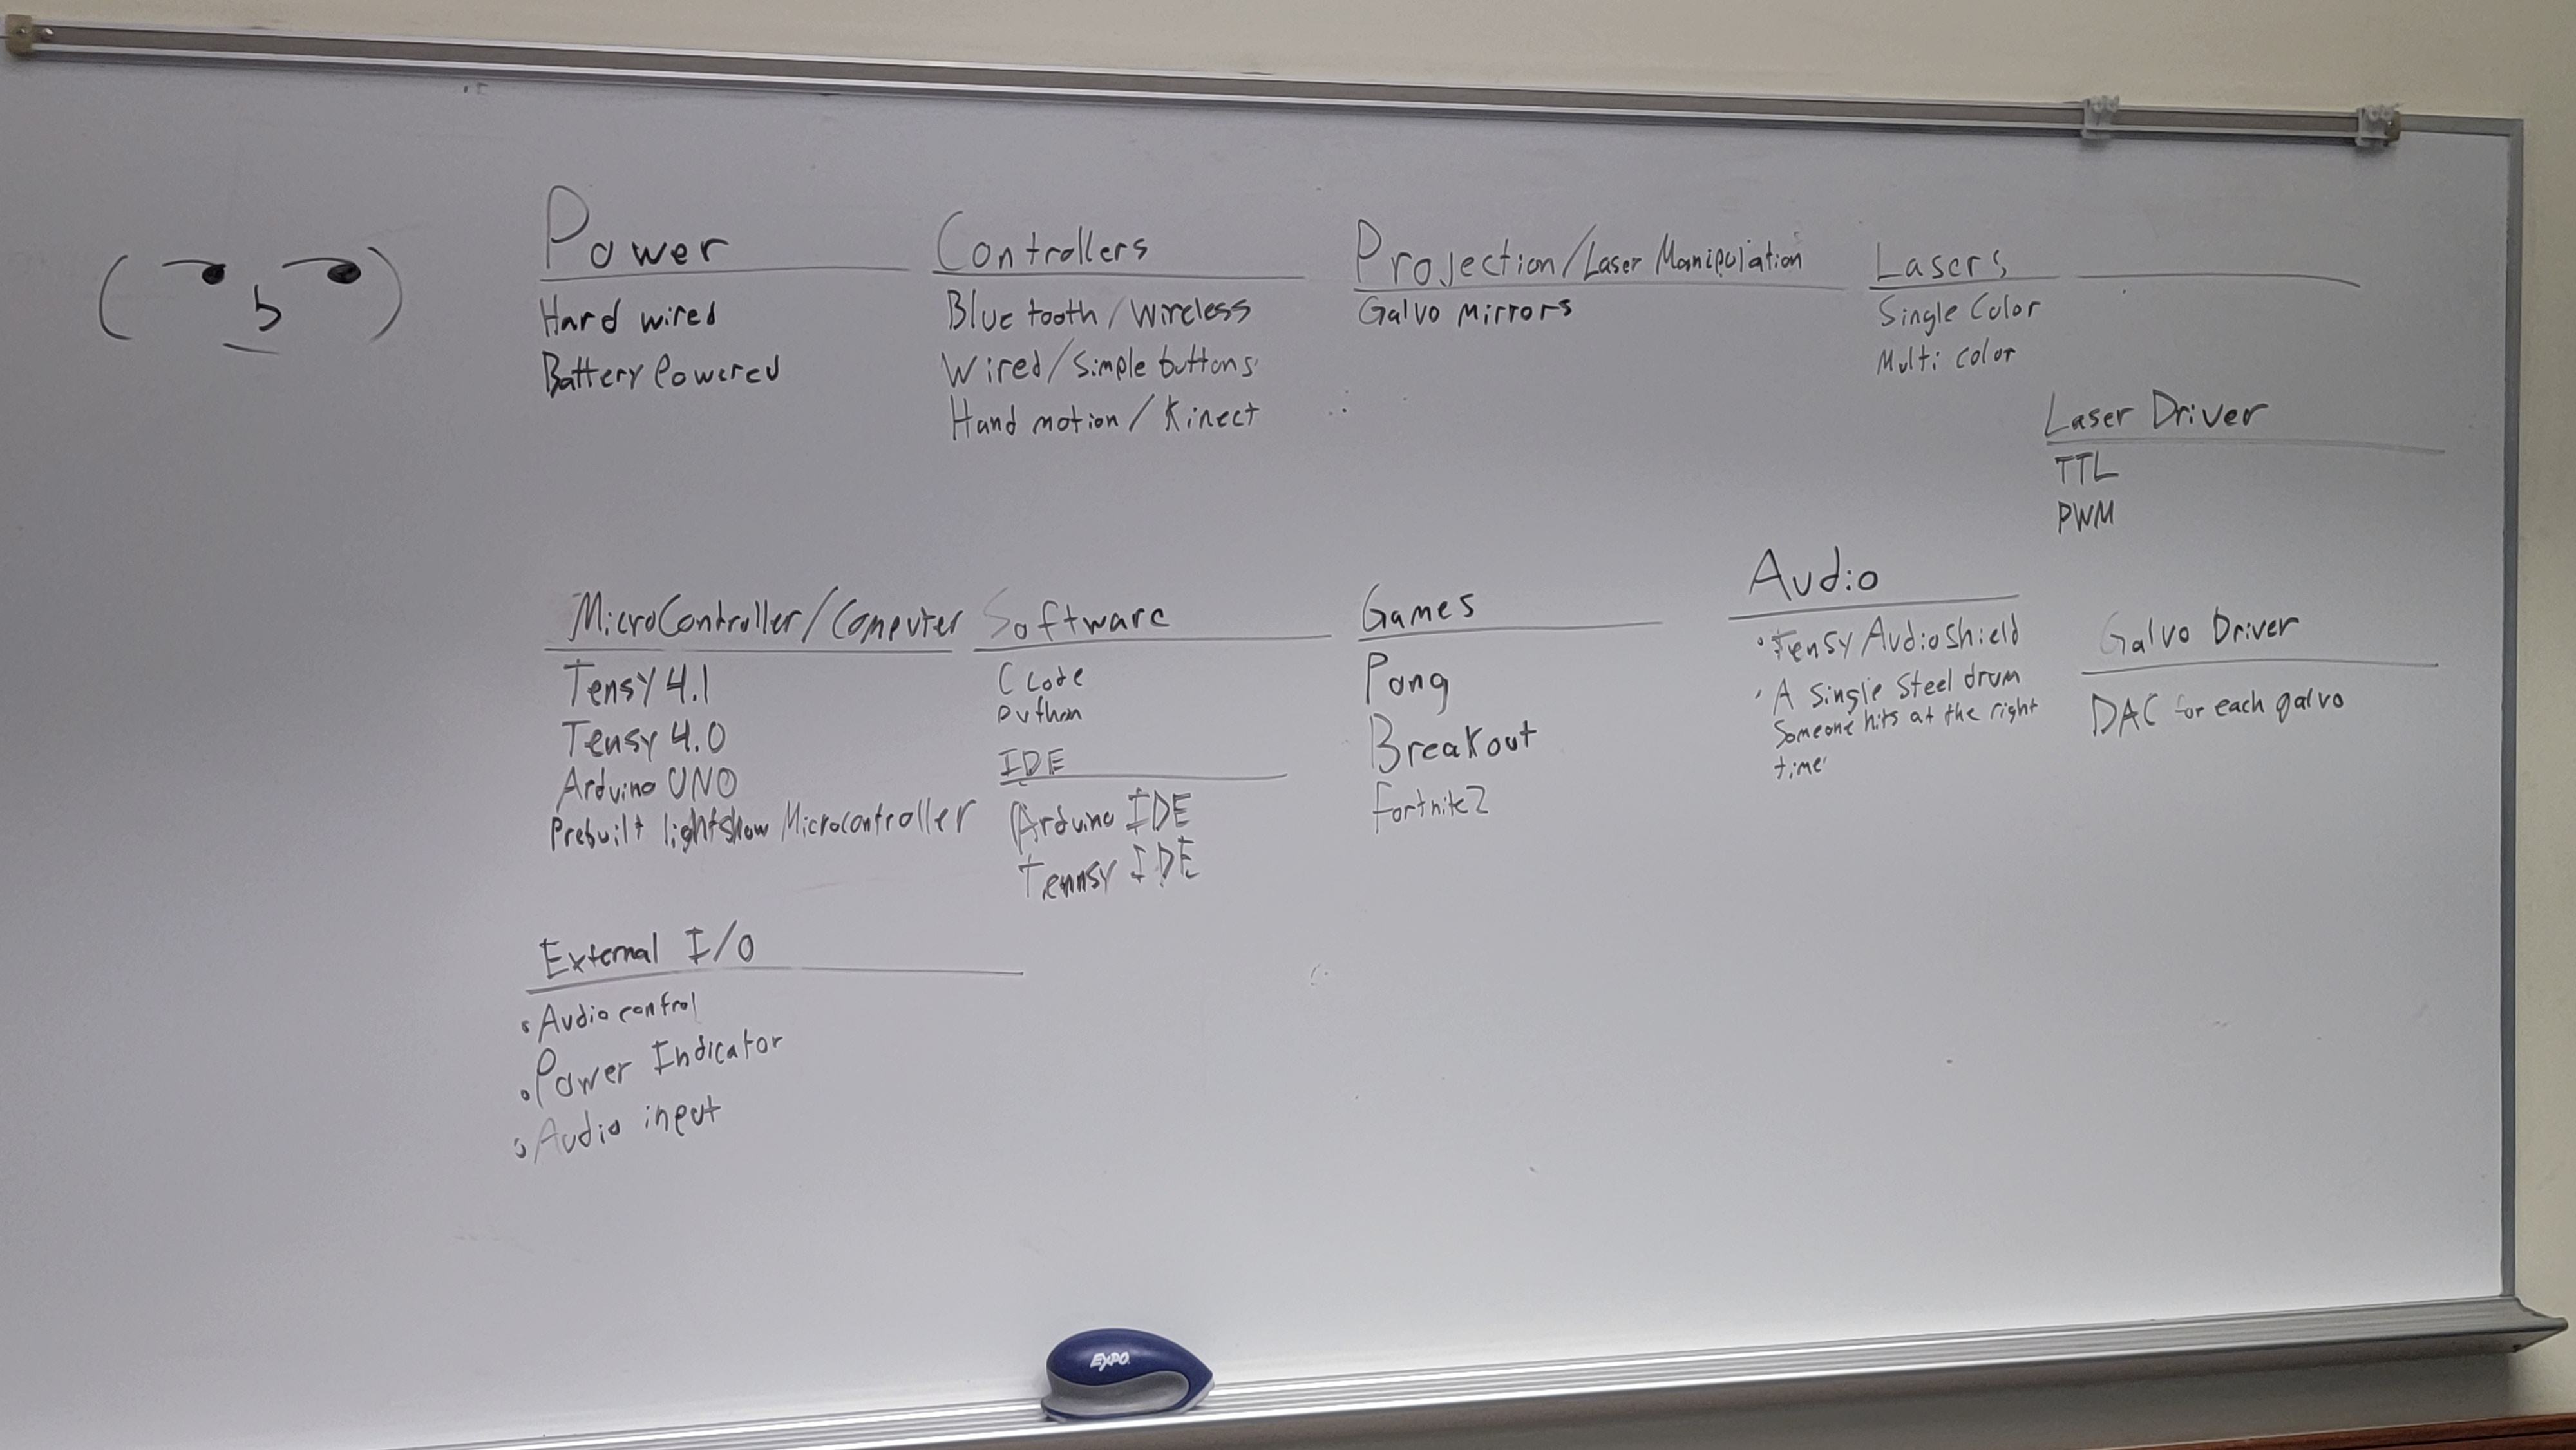 Power
Hard wired
Battery Powered
Controllers
Blue tooth/Wireless
Wired/Simple buttons
Hand motion/Kinect
Projection/Laser Manipulation
Galvo Mirrors
Lasers
Single Color
Multi color
Laser Driver
TTL
PWM
MicroController/Computer
Tensy 4.1
Tensy 4.0
Arduino UNO
Prebuilt lightshow Microcontroller
Software
C Code
Python
IDE
Arduino IDE
Tennsy IDE
Games
Pong
Breakout
Fortnite 2
Audio
• Tensy Audio Shield
• A Single Steel drum
Someone hits at the right
time
Galvo Driver
DAC for each galvo
External I/O
• Audio control
• Power Indicator
• Audio input
EXPO